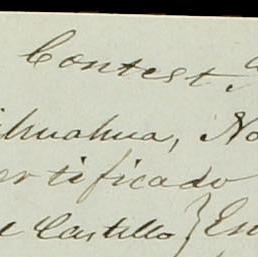 Contest.
ihuahua, No
ertificado
l Castillo } En